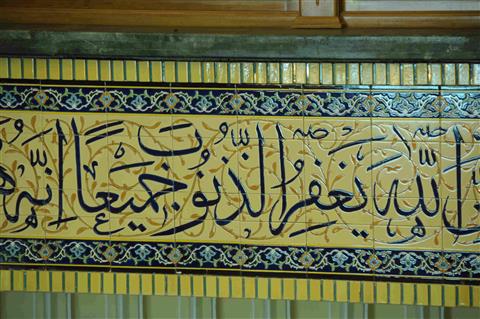 الله يَغفِرُ الذُّنُوبَ جَمِيعًا إِنَّهُ